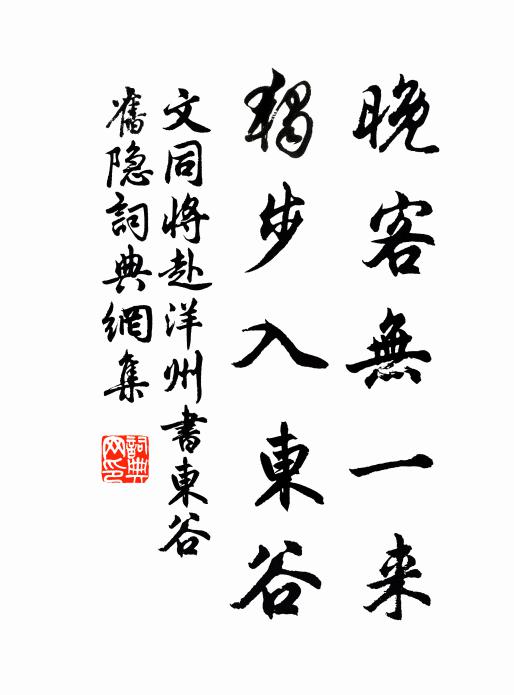 晚客無一来
獨步入東谷
文同將赴洋州書東谷
舊隐詞典網集
詞典網印